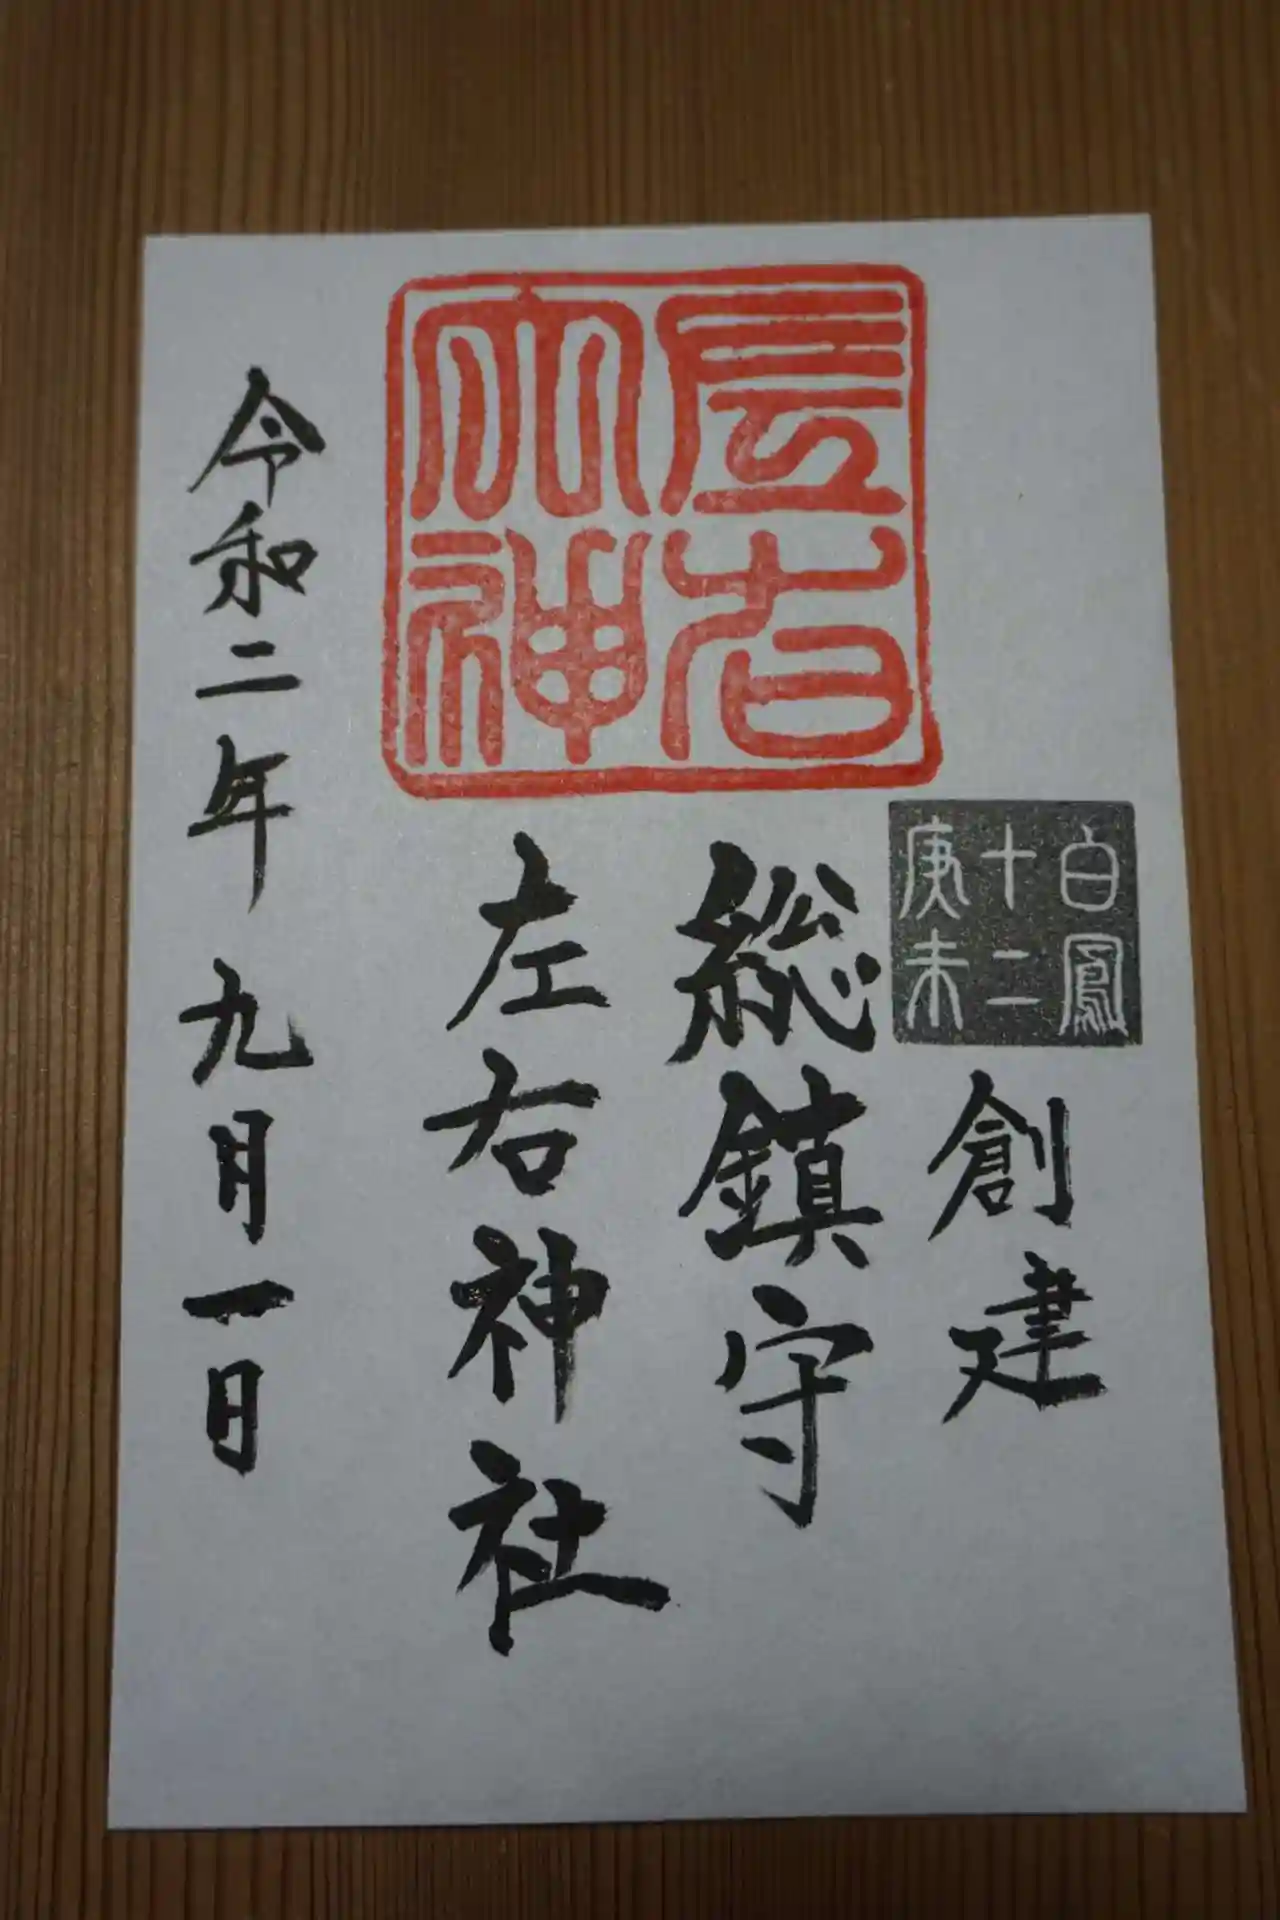 左右
大神
白鳳
十二
庚未
創建
総鎮守
左右神社
令和二年九月一日